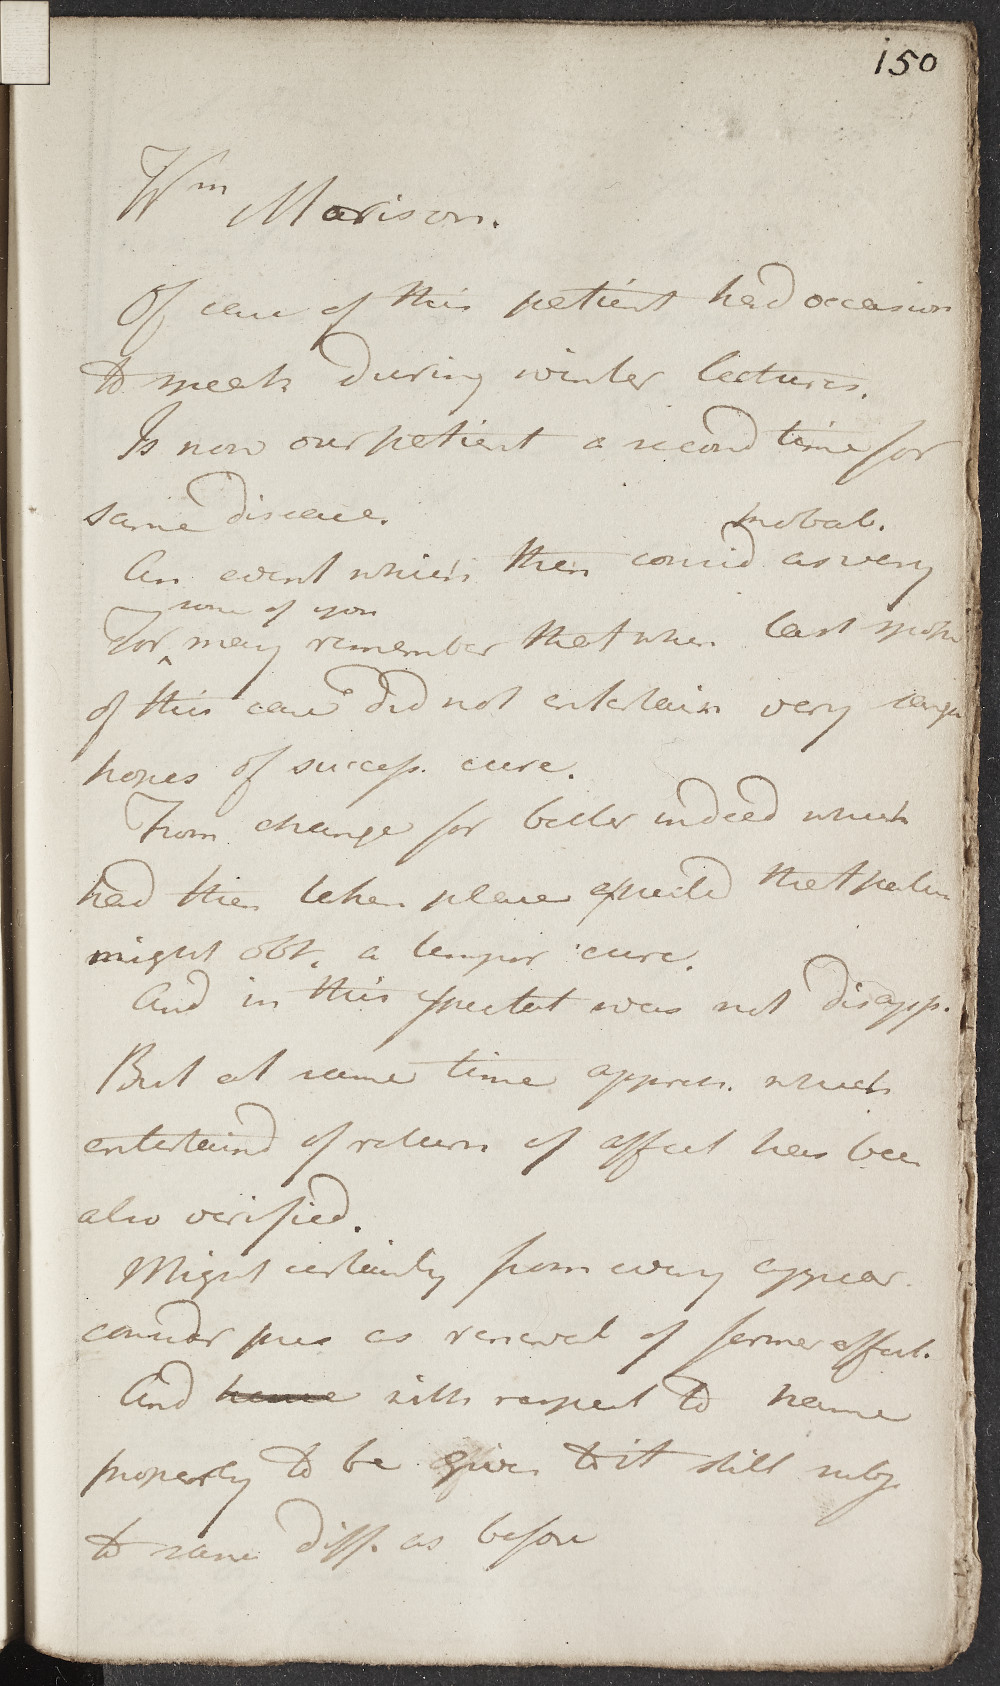 150
Wm Morison.
Of case of this patient had occasion
to speak during winter lectures.
Is now our patient a second time for
same disease.
An event which then consid as very probab.
For some of you may remember that when last spoke
of this case did not entertain very sangu
hopes of success. cure.
From change for better indeed which
had then taken place expected that patien
might obt. a tempor cure.
And in this expectat was not disapp.
But at same time appreh. which
entertaind of return of affect has been
also verified.
Might certainly from every appear.
consider pres as renewal of former affect.
And hence with respect to name
properly to be given to it still subj.
to same diff. as before